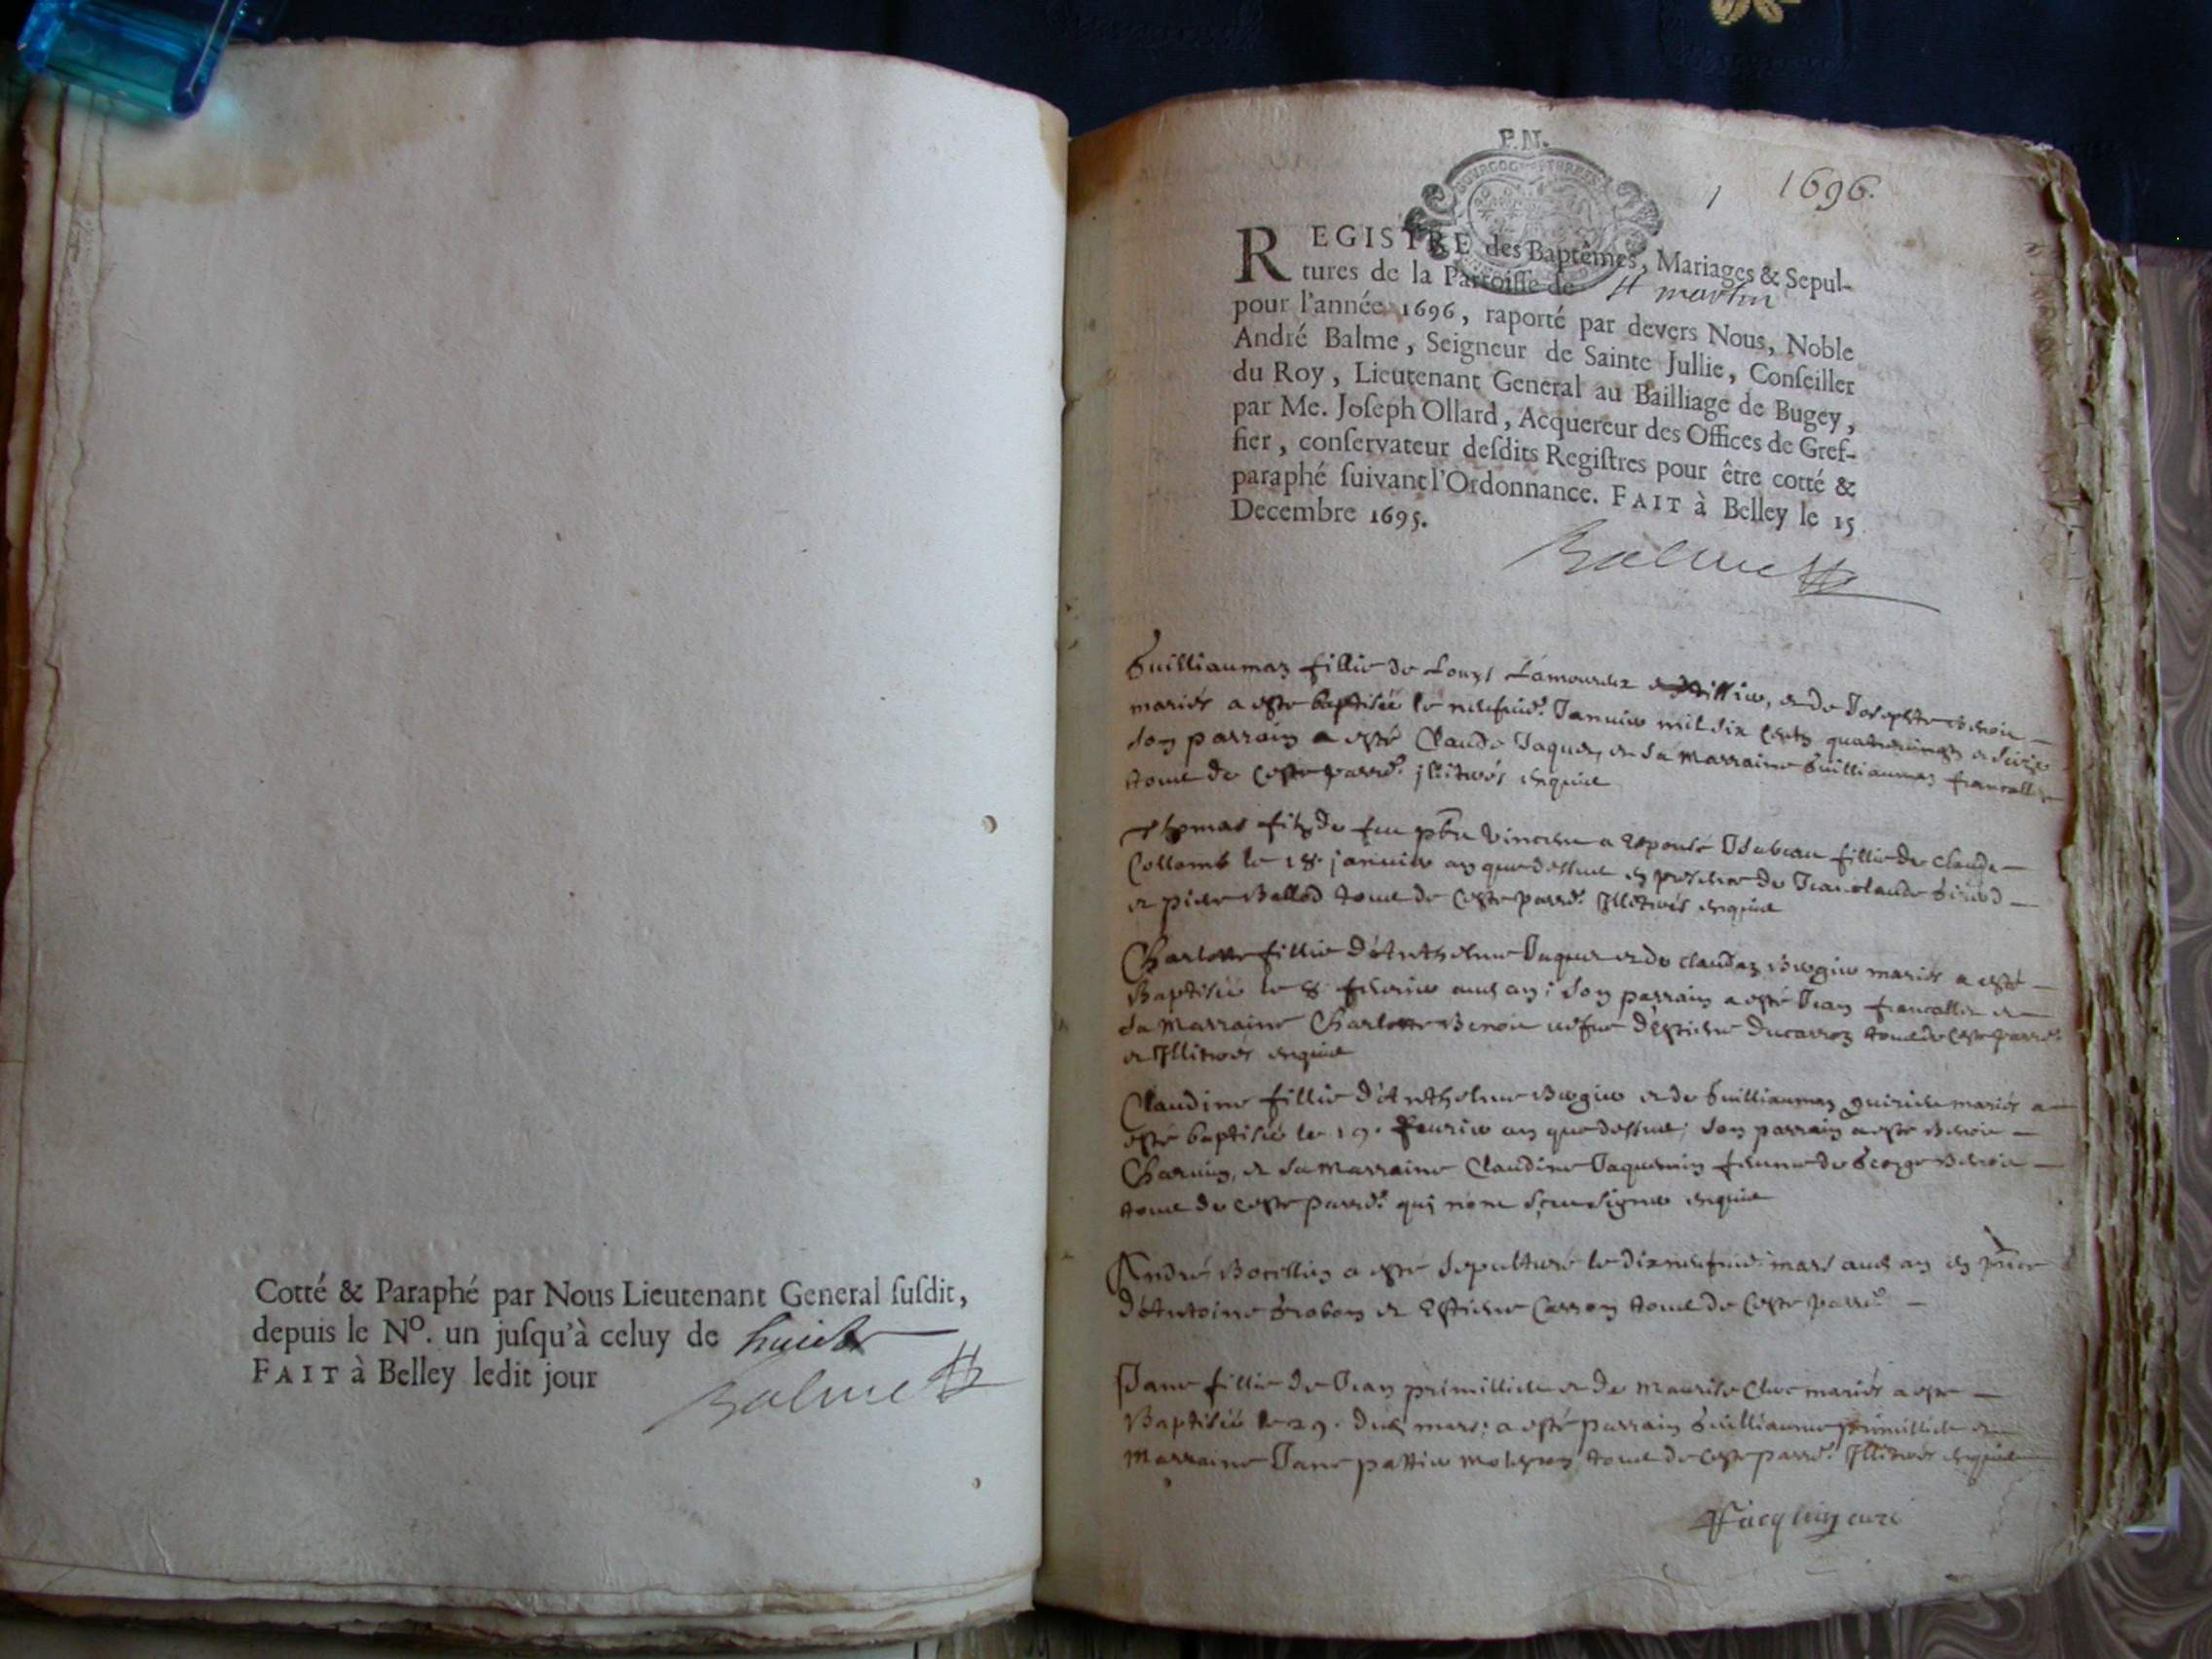 Cotté & Paraphé par Nous Lieutenant General ſuſdit,
depuis le Nº. un juſqu'à celuy de huict
FAIT à Belley ledit jour
Balme
P.N.
1 1696.
REGISTRE des Baptêmes, Mariages & Sepul-
tures de la Parroiſſe de St martin
pour l'année 1696, raporté par devers Nous, Noble
André Balme, Seigneur de Sainte Jullie, Conſeiller
du Roy, Lieutenant General au Bailliage de Bugey,
par Me. Joſeph Ollard, Acquereur des Offices de Gref-
fier, conſervateur deſdits Regiſtres pour être cotté &
paraphé ſuivant l'Ordonnance. FAIT à Belley le 15
Decembre 1695.
Balme
Guilliaumaz fillie de Louys Lamoureux et de Josephte Benoit
mariés a esté baptisée le neufvie. Janvier mil six cents quatrevingts et seize
son parrain a esté Claude Jaquet, et sa marraine Guilliaumaz francallet
tous de ceste parrse. illiterés enquis
Thomas filz de feu Vincent a Espousé Isabeau fillie de Claude
Collomb le 18. janvier an que dessus en presence de Jean claude
et pierre Ballod tous de ceste parrse. Illiterés enquis
Charlotte fillie d'Anthelme Jaquet et de Claudaz Bergier mariés a esté
Baptisée le 8. febvrier aud. an; son parrain a esté Jean francallet et
sa marraine Charlotte Benoit vefve d'Estienne Ducarroz tous de ceste parrse.
et Illiterés enquis
Claudine fillie d'Anthelme Bergier et de Guilliaumaz mariés a
esté baptisée le 19. feuvrier an que dessus; son parrain a esté Benoit
Charvin, et sa marraine Claudine Jaquemin femme de George Benoit
tous de ceste parrse. qui n'ont sceu signer enquis
André Bocellin a esté sepulturé le dixneufvie. mars aud. an en
d'Antoine et Estienne Carron tous de ceste parrse.
Jane fillie de Jean primilliet et de Maurise mariés a esté
Baptisée le 29. dud. mars; a esté parrain Guilliaume primilliet et
marraine Jane pattier tous de ceste parrse. Illiterés enquis
Jacquin curé